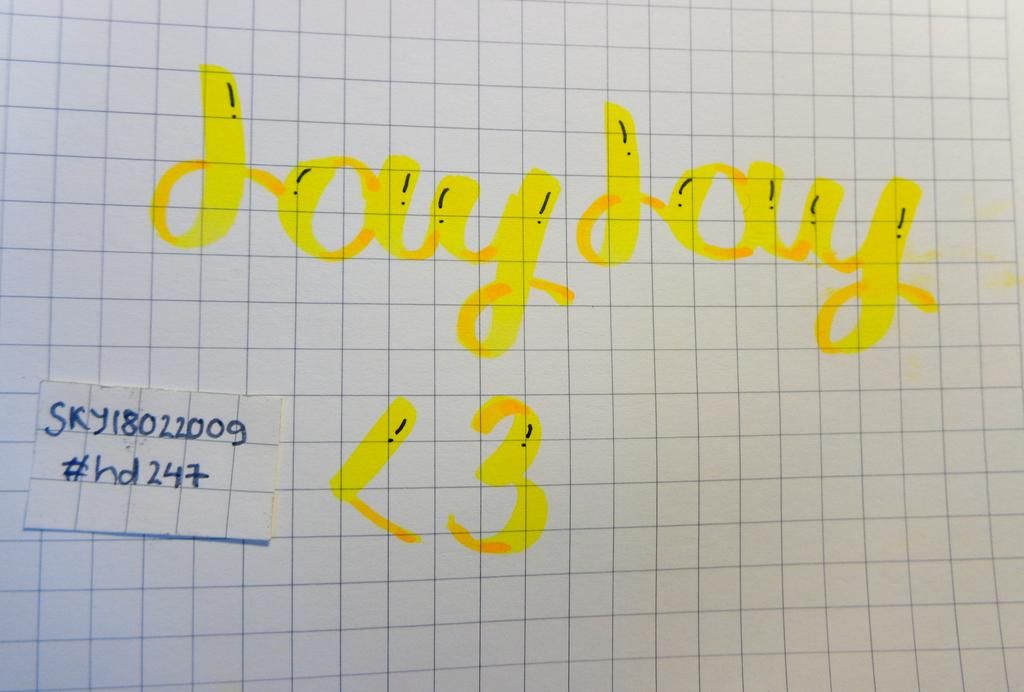 dayday
<3
SKY18022009
#hd247